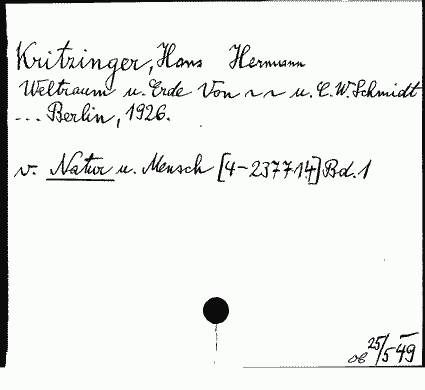 Kritzinger, Hans Hermann
Weltraum u. Erde Von ~ ~ u. C. W. Schmidt
... Berlin, 1926.
v. Natur u. Mensch [4-237714] Bd. 1
25/5 49